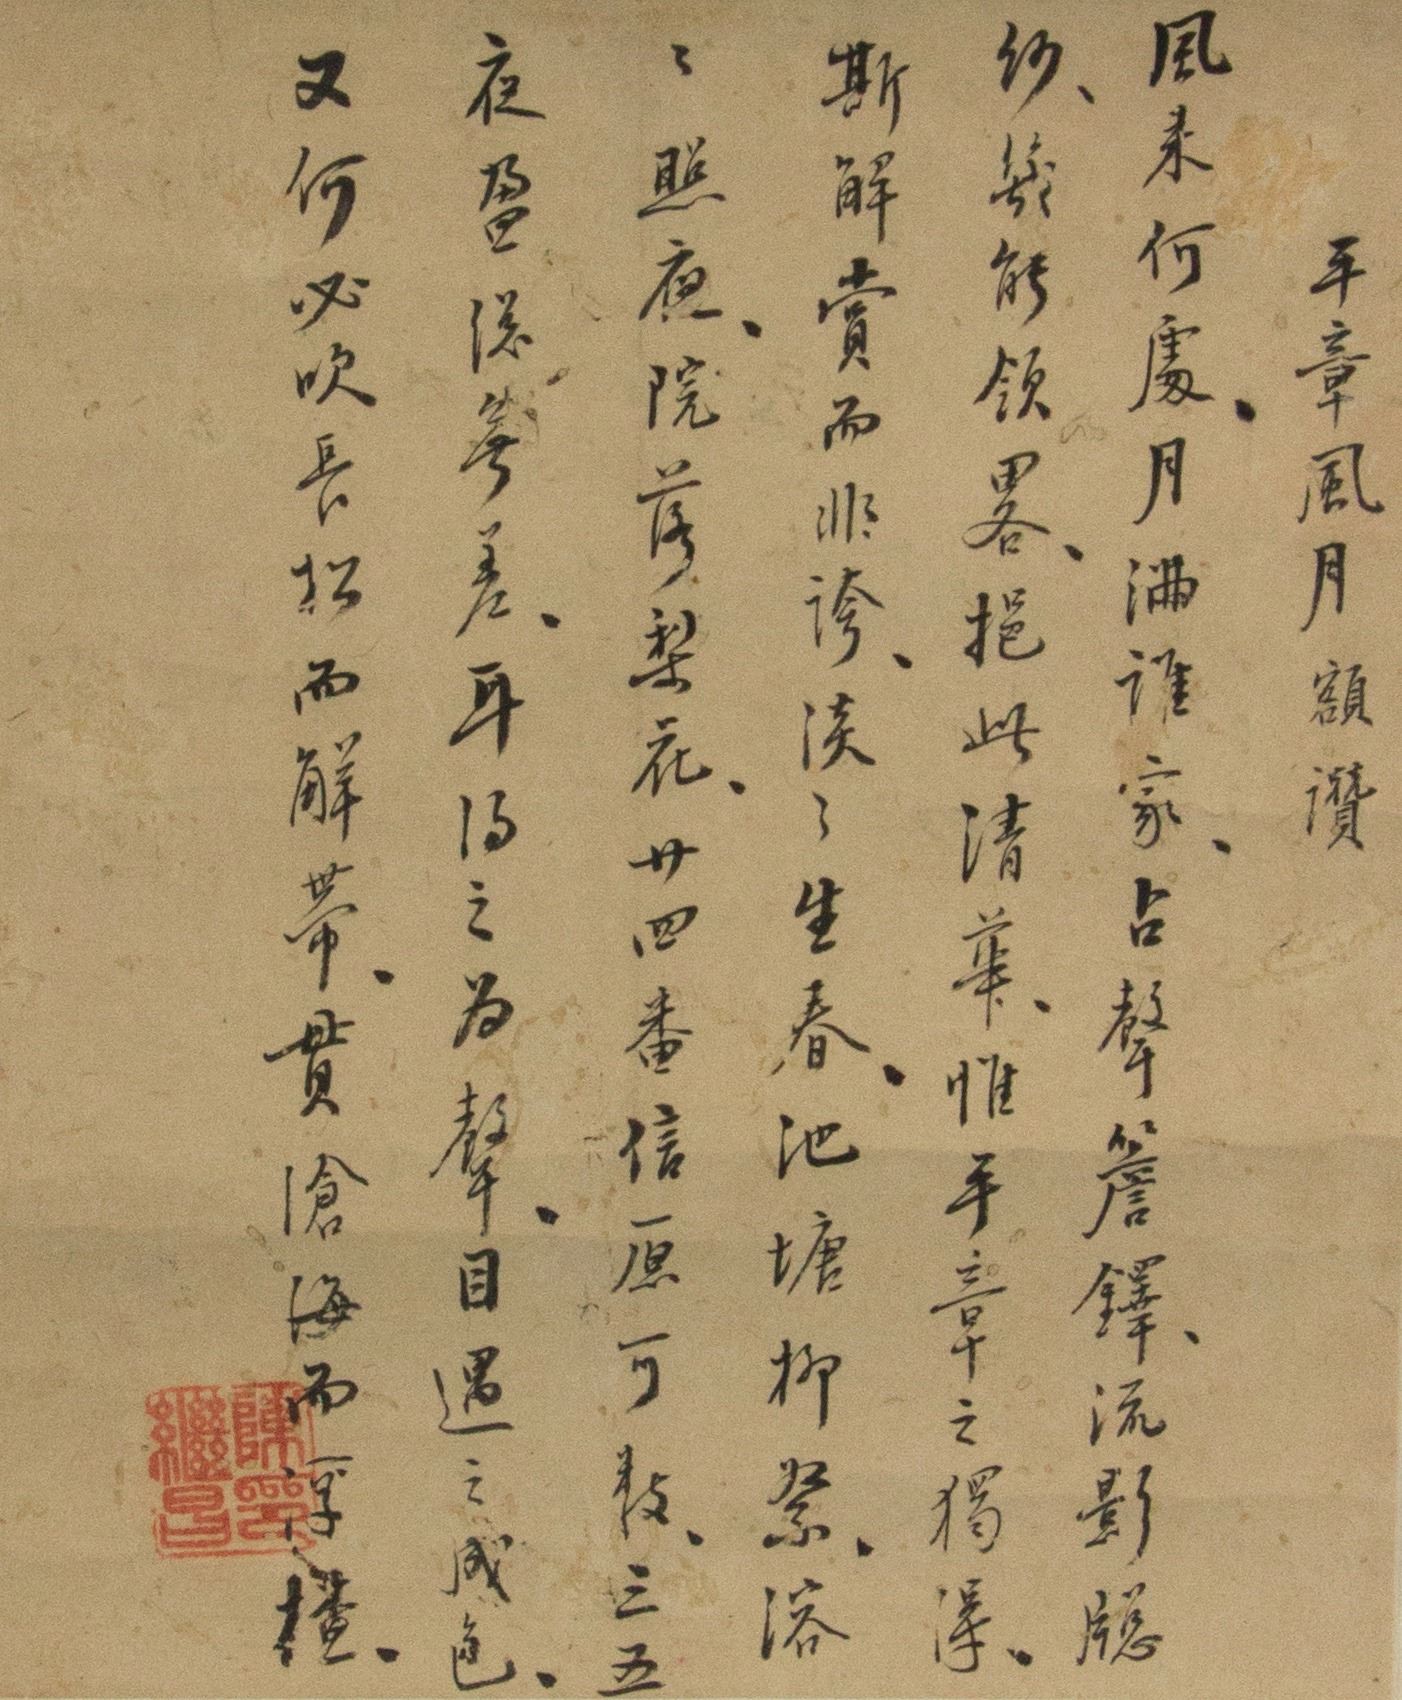 平章風月額讚
風来何處、月滿誰家、占聲簷鐸、流影牕
紗、能領畧、挹此清華、惟平章之獨深、
斯解賞而非誇、淡〻生春、池塘柳絮、溶
〻照夜、院落梨花、廿四番信原可數、三五
夜盈總無差、耳得之為聲、目遇之成色、
又何必吹長松而解帶、貫滄海而浮楂、
陳印繼昌